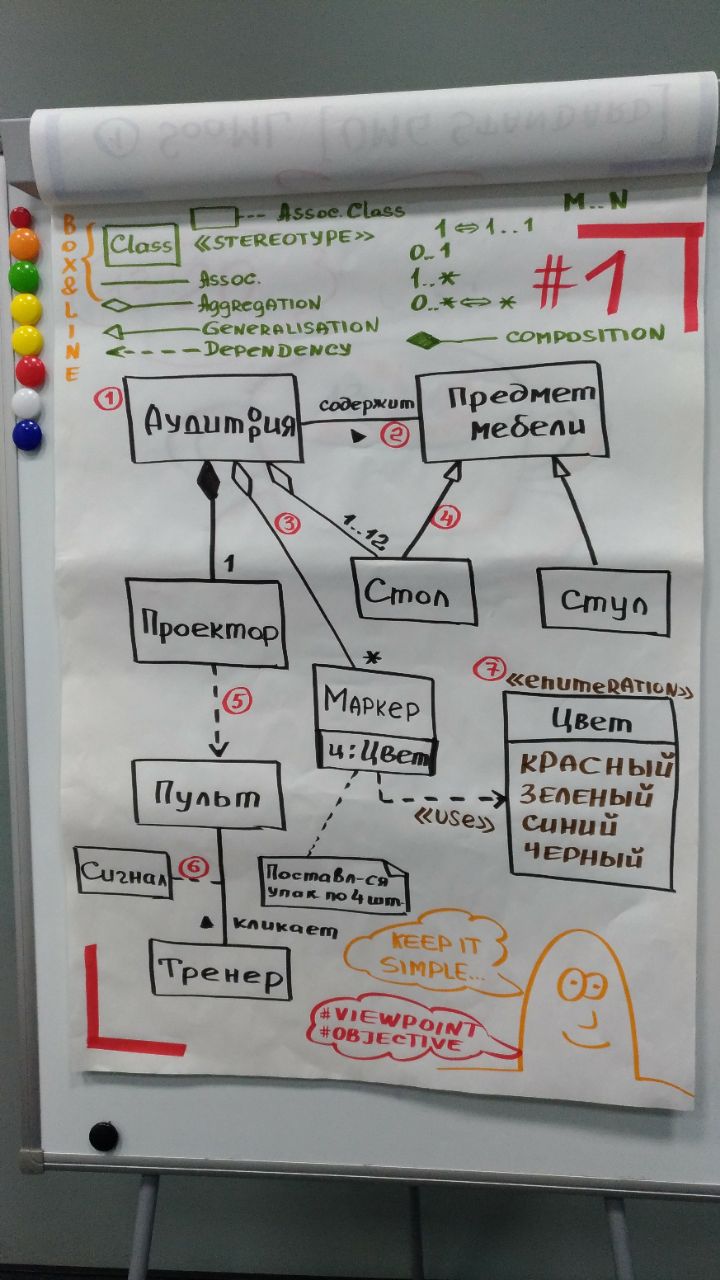 ④ SOAML [OMG STANDARD]
BOX&LINE
Class
Assoc.Class
«STEREOTYPE»
Assoc.
AggregATION
GeneralISATION
Dependency
M..N
1 ⇔ 1..1
0..1
1..*
0..* ⇔ *
COMPOSITION
#1
①
Аудитория
содержит
②
Предмет
мебели
③
1..12
④
1
Стол
Стул
Проектор
*
⑤
Маркер
ц:Цвет
⑦
«enumeRATION»
Цвет
КРАСНЫЙ
ЗЕЛЕНЫЙ
СИНИЙ
ЧЕРНЫЙ
«use»
Пульт
Сигнал
⑥
Поставл-ся
упак по 4 шт.
кликает
Тренер
KEEP IT
SIMPLE...
#VIEWPOINT
#OBJECTIVE